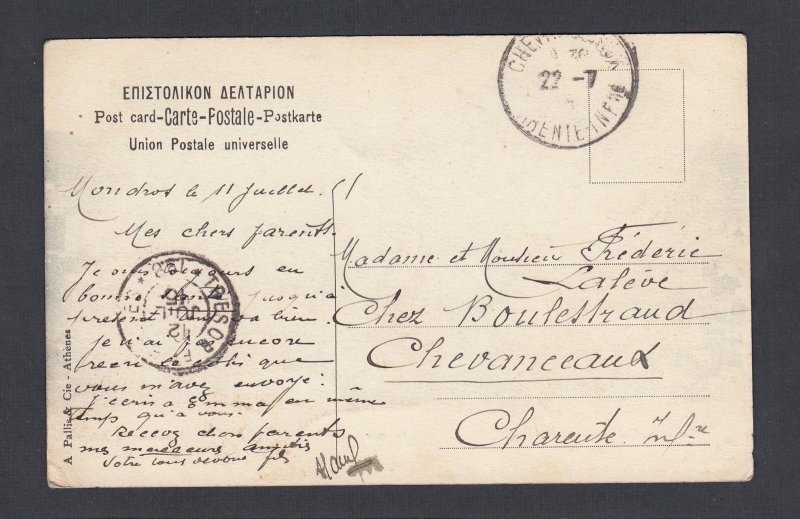 ΕΠΙΣΤΟΛΙΚΟΝ ΔΕΛΤΑΡΙΟΝ
Post card-Carte-Postale-Postkarte
Union Postale universelle
22 -7
Moudros le 11 Juillet.
Mes chers parents.
Je suis toujours en
bonne jusqu'à
présent va bien.
je n'ai pas encore
reçu le colis que
vous m'avez envoyé.
J'écris a Emma en même
temps qu'a vous.
Recevez chers parents
mes meilleures amitiés
Votre tous dévoué fils
TRESOR
12
JUIL
15
Madame et Monsieur Fréderic
Lalève
Chez Boulestraud
Chevanceaux
Charente Infre
A Pallis & Cie - Athènes